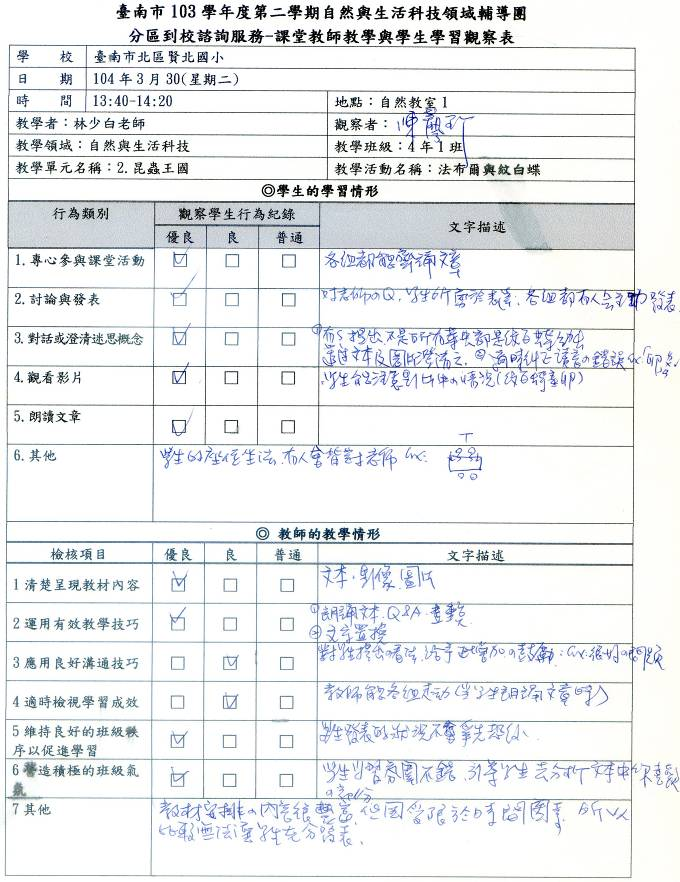 臺南市 103 學年度第二學期自然與生活科技領域輔導團
分區到校諮詢服務-課堂教師教學與學生學習觀察表
學 校 臺南市北區賢北國小
日 期 104 年 3 月 30(星期二)
時 間 13:40-14:20 地點：自然教室 1
教學者：林少白老師 觀察者：
教學領域：自然與生活科技 教學班級：4 年 1 班
教學單元名稱：2.昆蟲王國 教學活動名稱：法布爾與紋白蝶
◎學生的學習情形
行為類別 觀察學生行為紀錄 文字描述
優良 良 普通
1.專心參與課堂活動 各組都能齊誦文章
2.討論與發表 對老師のQ,學生 各組都有人會主動發表
3.對話或澄清迷思概念 ①有S提出不是所有 都是紋白蝶幼虫
透過文本及圖片澄清之. ②適時糾正讀音の錯誤
4.觀看影片 學生能注意影片中の情況(紋白蝶產卵)
5.朗讀文章
6.其他 學生的座位生法,有人會背對老師 ex: T
◎ 教師的教學情形
檢核項目 優良 良 普通 文字描述
1 清楚呈現教材內容 文本、影像、圖片
2 運用有效教學技巧 ①朗誦文本、Q&A
②文字置換
3 應用良好溝通技巧 對學生提出の看法,給予 の鼓勵:ex:很好の問題
4 適時檢視學習成效 教師能各組走動(當學生朗誦文章時)
5 維持良好的班級秩序以促進學習 學生發表的狀況不會爭先恐後.
6 營造積極的班級氣氛 學生學習氛圍不錯,引導學生去分析文本中
7 其他 教材安排の內容很豐富,但因受限於時間因素,所以
比較無法讓學生充分發表.